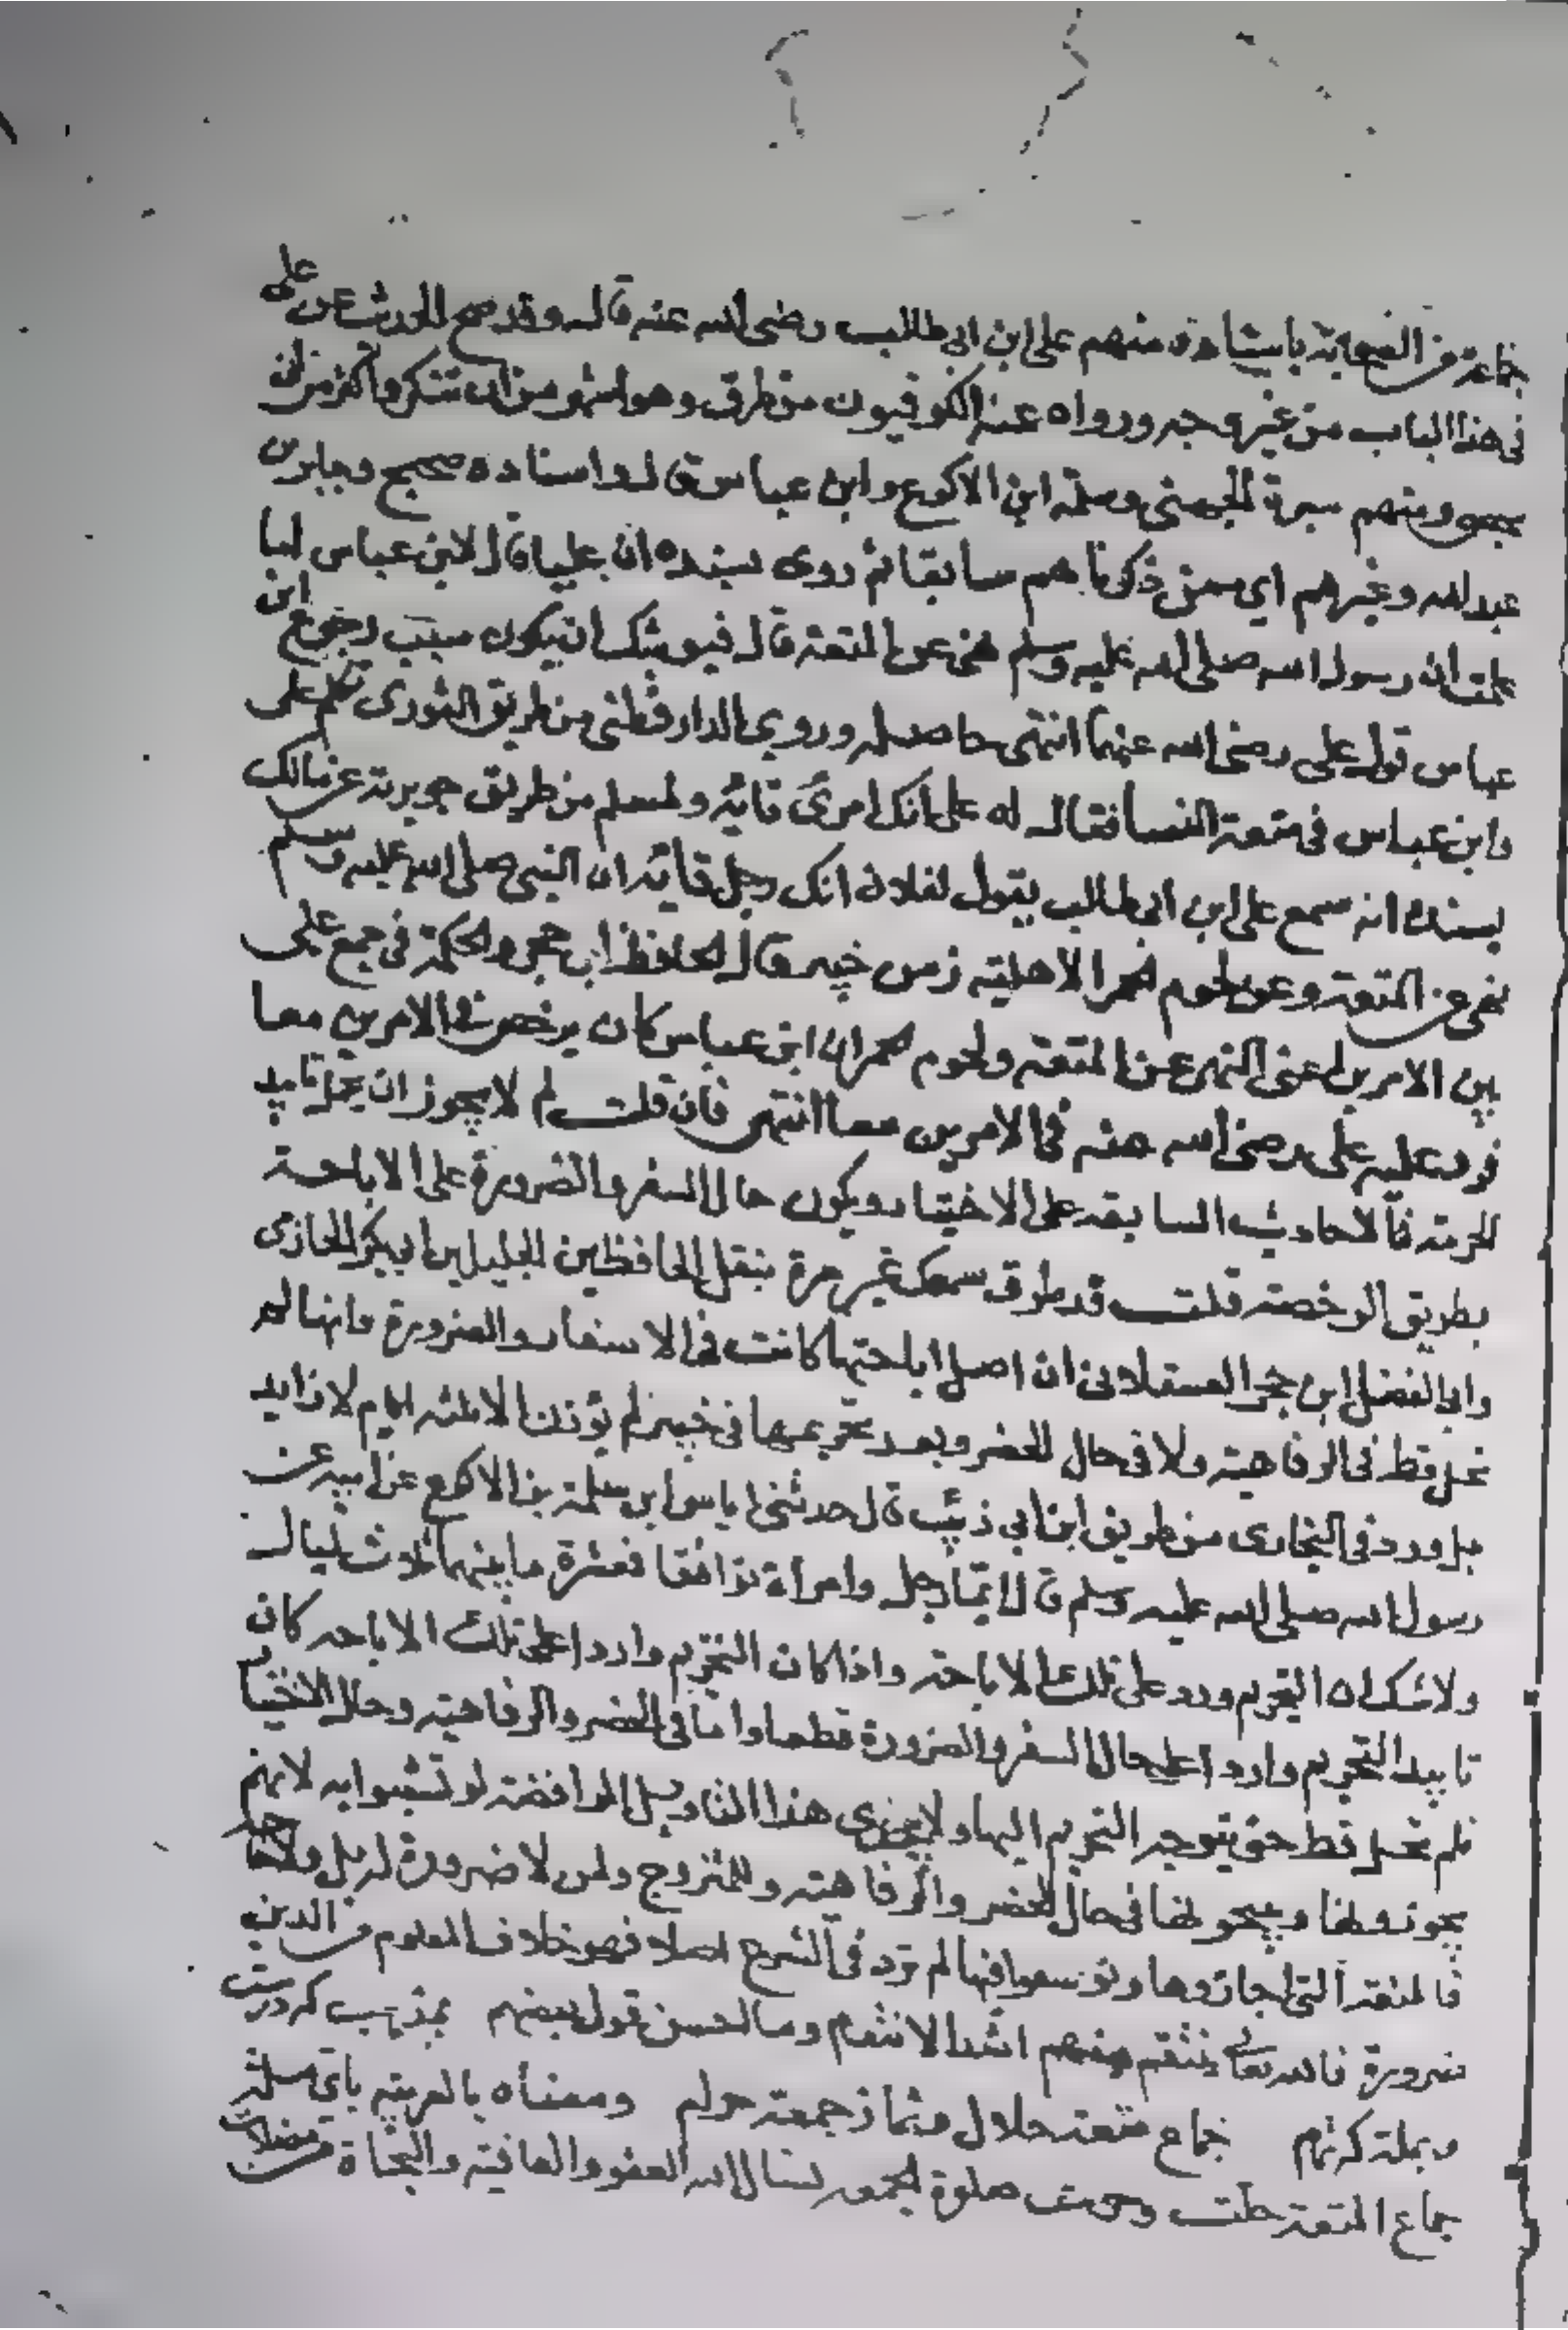 جماعة من الصحابة باسناده منهم على ابن ابى طالب رضى الله عنه قال وقد صح الحديث عن على
فى هذا الباب من غير وجه ورواه عنه الكوفيون من طرق وهو اشهر من ان تنكر واكثر من ان
ومنهم سبرة الجهنى وسلمة ابن الاكوع وابن عباس قال واسناده صحيح وجابر بن
عبد الله وغيرهم اى ممن ذكرناهم سابقا ثم روى بسنده ان عليا قال لابن عباس اما
علمت ان رسول الله صلى الله عليه وسلم نهى عن المتعة قال فيوشك ان يكون سبب رجوع ابن
عباس قول على رضى الله عنهما انتهى حاصله وروى الدارقطنى من طريق الثورى تكلم على
وابن عباس فى متعة النسا فقال له على انك امرئ تائه ولمسلم من طريق جويرية عن مالك
بسنده انه سمع على ابن ابى طالب يقول لفلان انك رجل تائه ان النبى صلى الله عليه وسلم
نهى عن المتعة وعن لحوم الحمر الاهلية زمن خيبر قال الحافظ ابن حجر والحكمة فى جمع على
بين الامرين اعنى النهى عن المتعة ولحوم الحمر ان ابن عباس كان يرخص فى الامرين معا
فرد عليه على رضى الله عنه فى الامرين معا انتهى فان قلت لم لا يجوز ان يحمل تابيد
الحرمة فى الاحاديث السابقة على الاختيار ويكون حال السفر والضرورة على الاباحة
بطريق الرخصة قلت قد طرق سمعك غير مرة بنقل الحافظين الجليلين ابى بكر الحازمى
وابى الفضل ابن حجر العسقلانى ان اصل اباحتها كانت فى الاسفار والضرورة وانها لم
تحل قط فى الرفاهية ولا فى حال الحضر وبعد تحريمها فى خيبر لم يؤذن الا ثلثه ايام لا زايد
بل ورد فى البخارى من طريق ابن ابى ذئب قال حدثنى اياس ابن سلمة بن الاكوع عن ابيه عن
رسول الله صلى الله عليه وسلم قال ايما رجل وامرأة توافقا فعشرة ما بينهما ثلاث ليال
ولا شك ان التحريم ورد على تلك الاباحة واذا كان التحريم واردا على تلك الاباحه كان
تابيد التحريم واردا على حال السفر والضرورة قطعا واما فى الحضر والرفاهية وحال الاختيار
فلم تحل قط حتى يتوجه التحريم اليها ولا يجزى هذا التاويل الرافضة لو تشبثوا به لانهم
يجوزونها ويبيحونها فى حال الحضر والرفاهية وللمتزوج ولمن لا ضرورة له بل ولا حاجة
فالمتعة التى اجازوها وتوسعوا فيها لم ترد فى الشرع اصلا فهو خلاف المعلوم من الدين
ضرورة فالله تعالى ينتقم منهم اشد الانتقام وما احسن قول بعضهم بمذهب كه درست
وبملة كدام جماع متعه حلال ونماز جمعه حرام ومعناه بالعربية باى ملة
جماع المتعة حلت وحرمت صلوة الجمعه نسال الله العفو والعافية والنجاة من